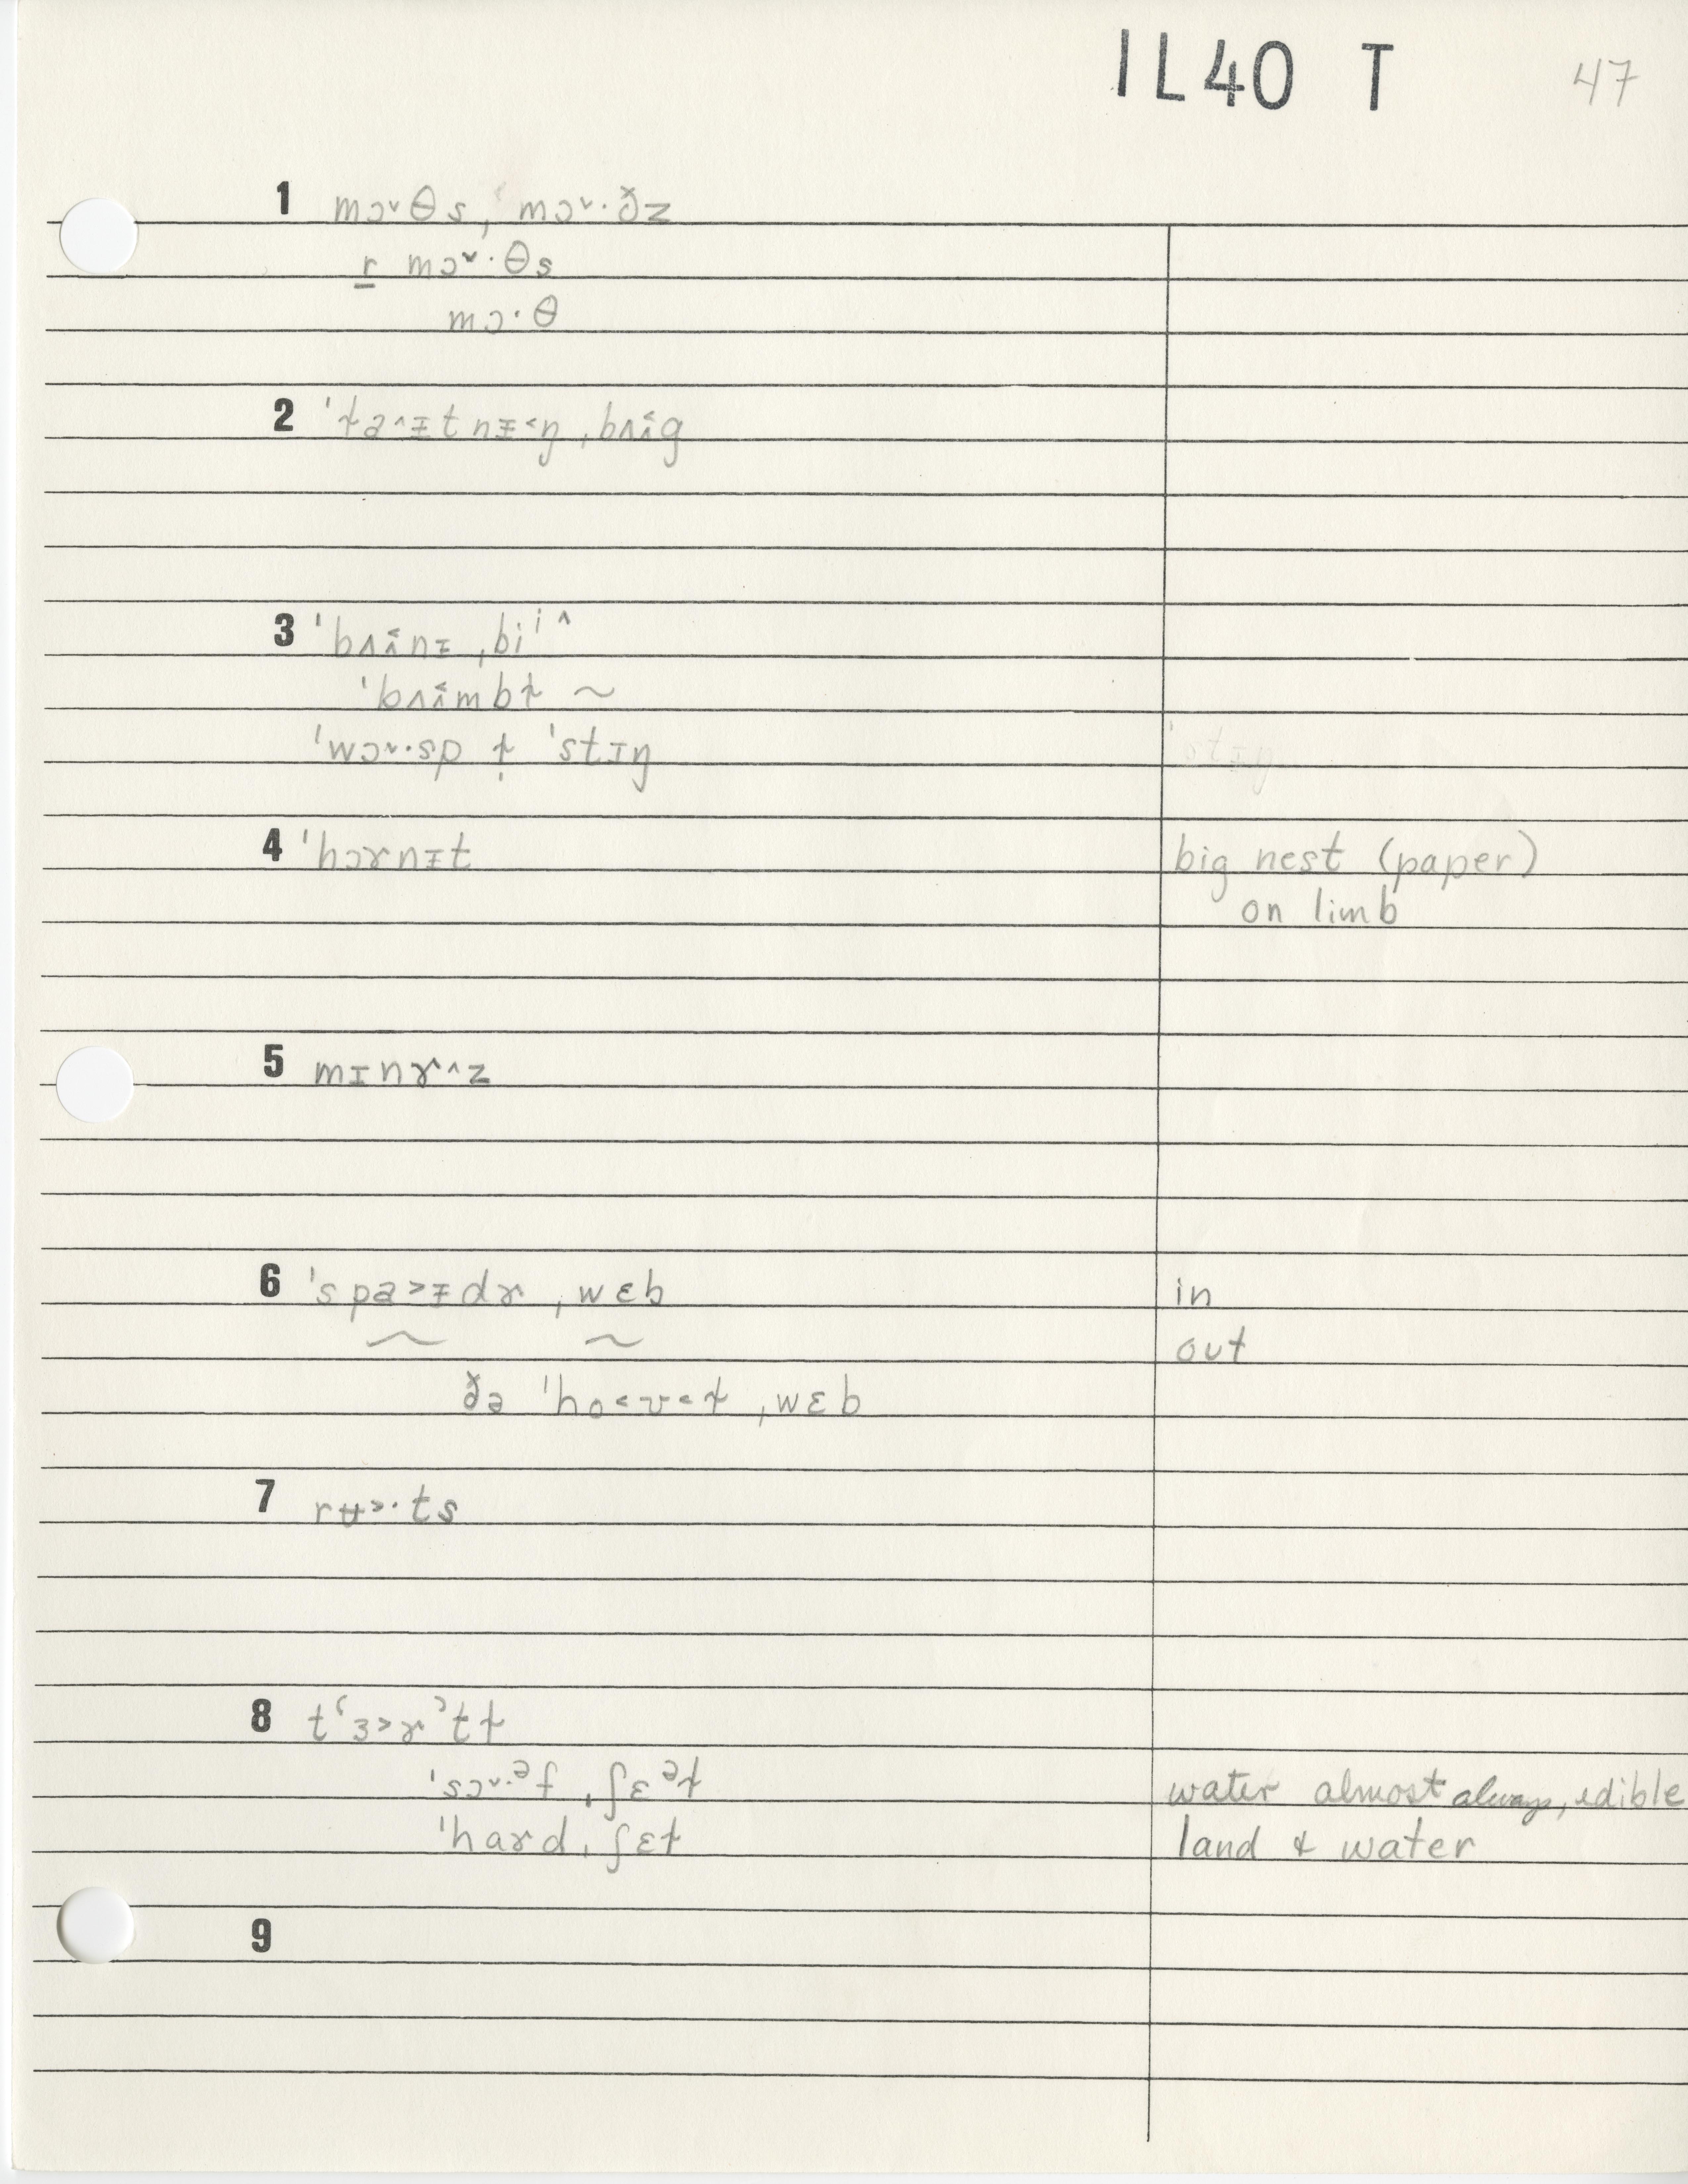 IL40 T 47
1 mɔ˅θs, mɔ˅·ðz
r mɔ˅·θs
mɔ·θ
2 ˈɫa^ɪtnɪ˂ŋ ˌbʌɪ̂g
3 ˈbʌɪ̂nɪ ˌbiⁱ^
ˈbʌɪ̂mbɫ ~
ˈwɔ˅·sp ɫ̩ ˈstɪŋ
4 ˈhɔɤnɪt big nest (paper)
on limb
5 mɪnɤ^z
6 ˈspa˃ɪdɚ ˌwɛb in
~ ~ out
ðə ˈho˂ʊ˂ɫ ˌwɛb
7 rʉ˃·ts
8 tʻɜ˃ɚʾtɫ
ˈsɔ˅·ᵊf ˌʃɛᵊɫ water almost always, edible
ˈhaɚd ˌʃɛɫ land & water
9